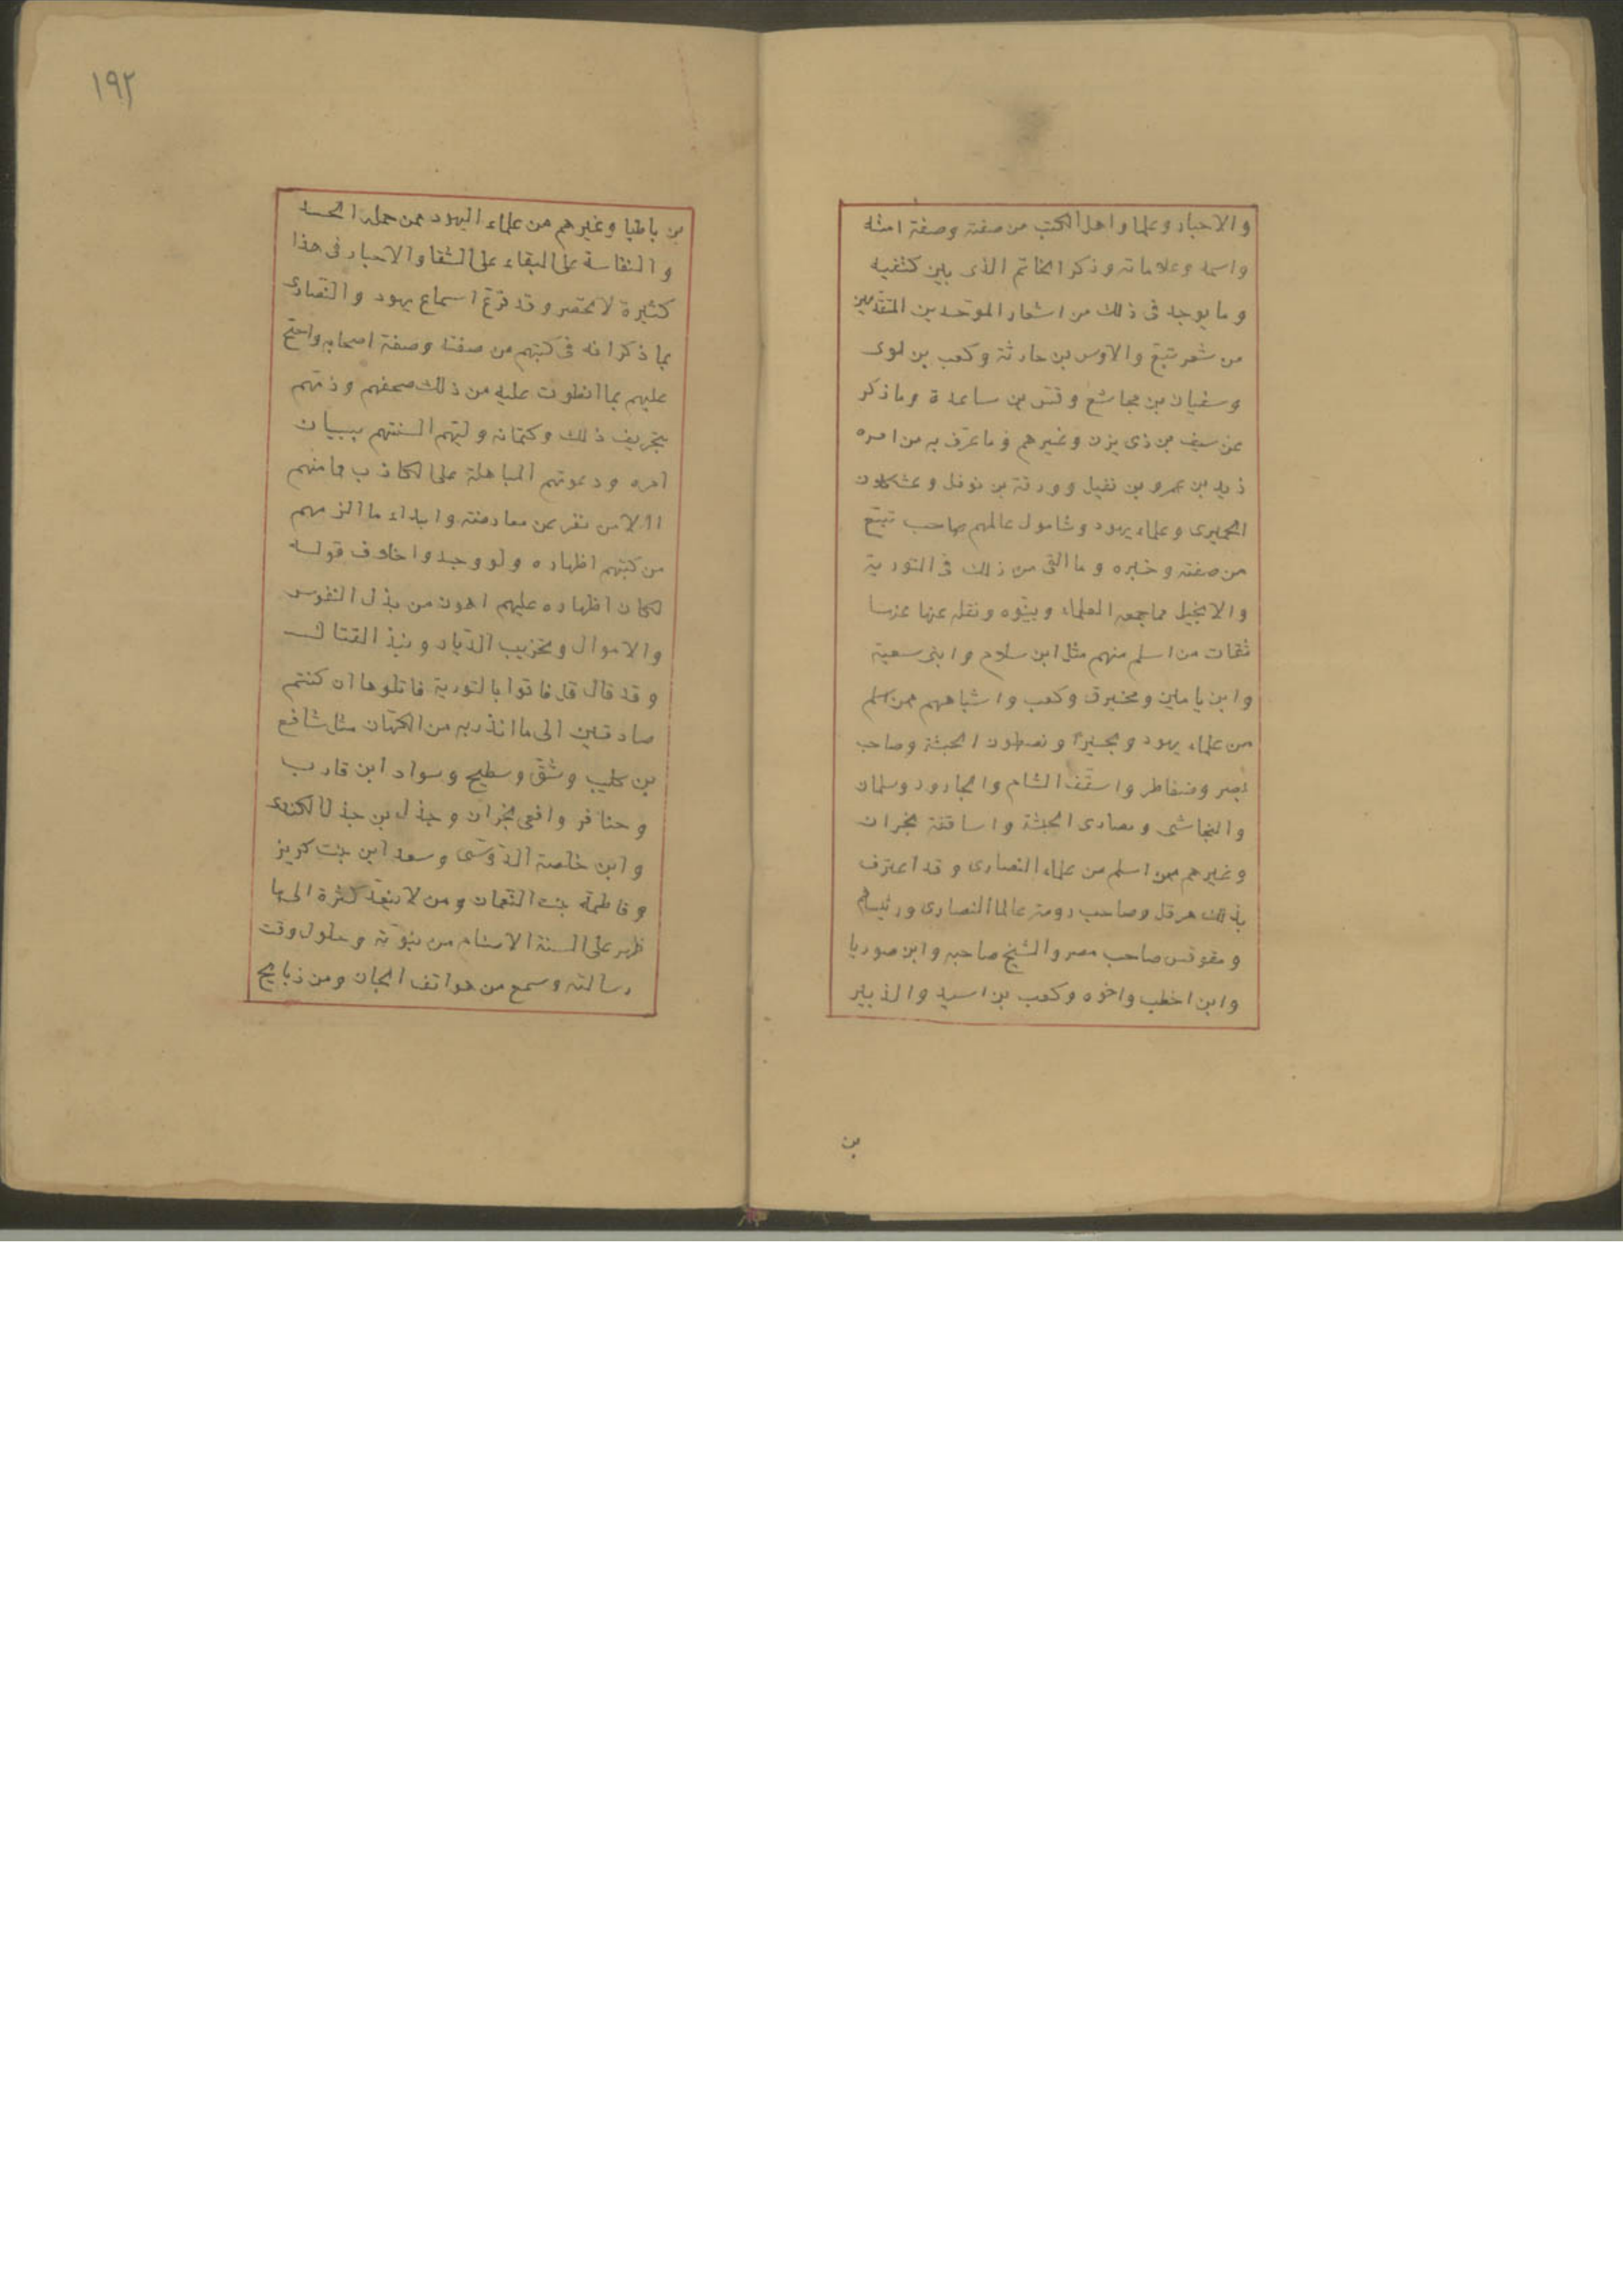 والاحبار وعلما واهل الكتب من صفته وصفة امته
واسمه وعلاماته وذكر الخاتم الذى بين كتفيه
وما يوجد فى ذلك من اشعار الموحدين المتقدمين
من شعر تبع والاوس بن حارثة وكعب بن لوى
وسفيان بن مجاشع وقس بن ساعدة وما ذكر
عن سيف بن ذى يزن وغيرهم وما عرف به من امره
زيد بن عمرو بن نفيل وورقة بن نوفل وعثكلان
الحميرى وعلماء يهود وشامول عالمهم صاحب تبع
من صفته وخبره وما القى من ذلك فى التورية
والانجيل مما جمعه العلماء وبينوه ونقله عنها
ثقات من اسلم منهم مثل ابن سلام وابنى سعية
وابن يامين ومخيرق وكعب واشباههم ممن اسلم
من علماء يهود وبحيرا ونصطون الحبشة وصاحب
بصر وضغاطر واسقف الشام والجارود وسلمان
والنجاشى ونصارى الحبشة واساقفة نجران
وغيرهم ممن اسلم من علماء النصارى وقد اعترف
بذلك هرقل وصاحب رومة عالما النصارى ورئيساهم
ومقوقس صاحب مصر والشيخ صاحبه وابن صوريا
وابن اخطب واخوه وكعب بن اسيد والزبير
بن
١٩٢
بن باطيا وغيرهم من علماء اليهود ممن حمله الحسد
والنفاسة على البقاء على الشقا والاخبار فى هذا
كثيرة لا تحصر وقد قرع اسماع يهود والنصارى
بما ذكر انه فى كتبهم من صفته وصفة اصحابه واحتج
عليهم بما انطوت عليه من ذلك صحفهم وذمهم
بتحريف ذلك وكتمانه وليهم السنتهم ببيان
امره ودعوتهم المباهلة على الكاذب فما منهم
الا من نفر عن معارضته وابداء ما الزمهم
من كتبهم اظهاره ولو وجدوا خلاف قوله
لكان اظهاره عليهم اهون من بذل النفوس
والاموال وتخريب الديار ونبذ القتال
وقد قال قل فاتوا بالتورية فاتلوها ان كنتم
صادقين الى ما انذر به من الكهان مثل شافع
بن كليب وشق وسطيح وسواد ابن قارب
وخنافر وافعى نجران وجذل بن جذل الكندى
وابن خلصة الدوسى وسعد ابن بنت كريز
وفاطمة بنت النعمان ومن لا ينعد كثرة الى ما
ظهر على السنة الاصنام من نبوته وحلول وقت
رسالته وسمع من هواتف الجان ومن ذبايح